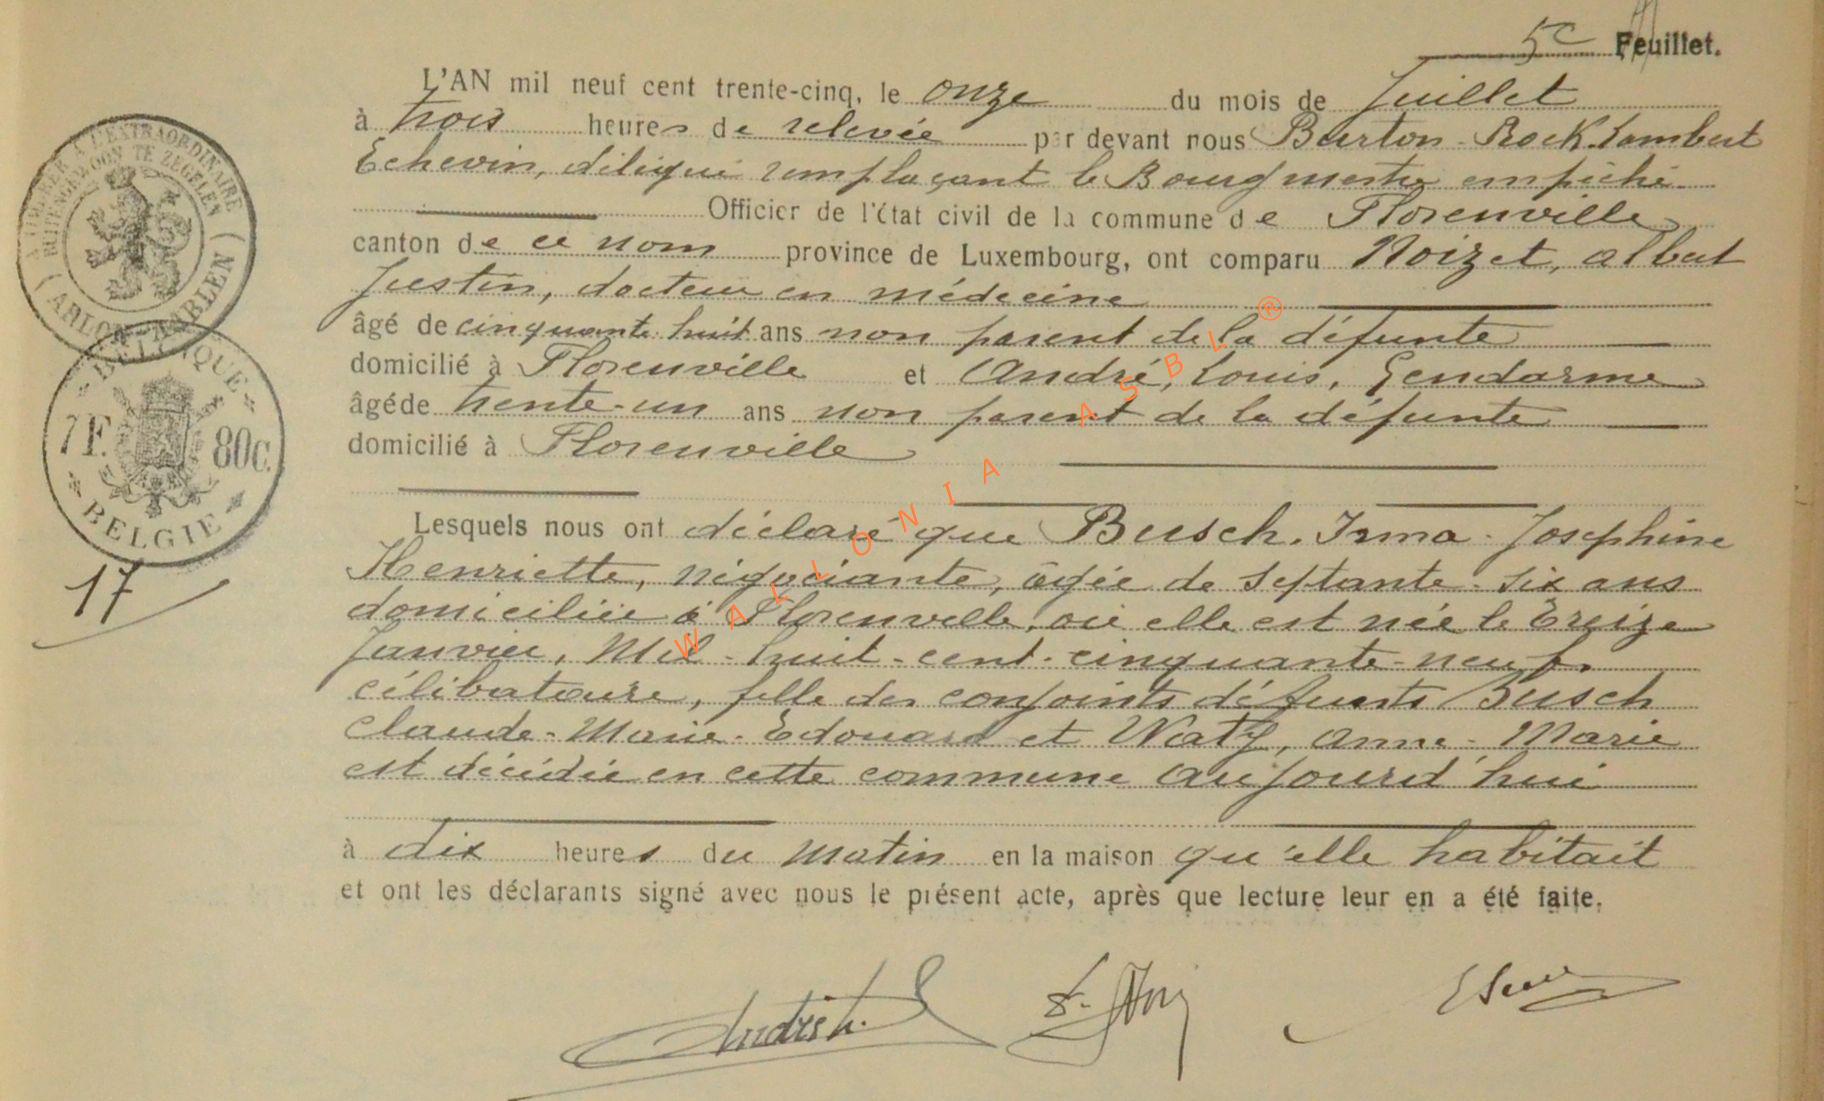 5e Feuillet.
L'AN mil neuf cent trente-cinq, le onze du mois de Juillet
à trois heures de relevée par devant nous Burton Rock Lambert
Echevin, délégué remplaçant le Bourgmestre empêché
Officier de l'état civil de la commune de Florenville
canton de ce nom province de Luxembourg, ont comparu Noizet, Albert
Justin, docteur en médecine
âgé de cinquante huit ans non parent de la défunte
domicilié à Florenville et André, Louis, Gendarme
âgé de trente-un ans non parent de la défunte
domicilié à Florenville
Lesquels nous ont déclaré que Busch, Irma - Josephine
Henriette, négociante, âgée de septante-six ans
domiciliée à Florenville, où elle est née le treize
Janvier, Mil-huit-cent-cinquante-neuf,
célibataire, fille des conjoints défunts Busch
Claude-Marie-Edouard et Watg, Anne-Marie
est décédée en cette commune aujourd'hui
à dix heures du matin en la maison qu'elle habitait
et ont les déclarants signé avec nous le présent acte, après que lecture leur en a été faite.
André L.
A TIMBRER A L'EXTRAORDINAIRE
BUITENGEWOON TE ZEGELEN
(ARLON-AARLEN)
BELGIQUE
7F. 80c.
BELGIE
17
WALLONIA ASBL ®